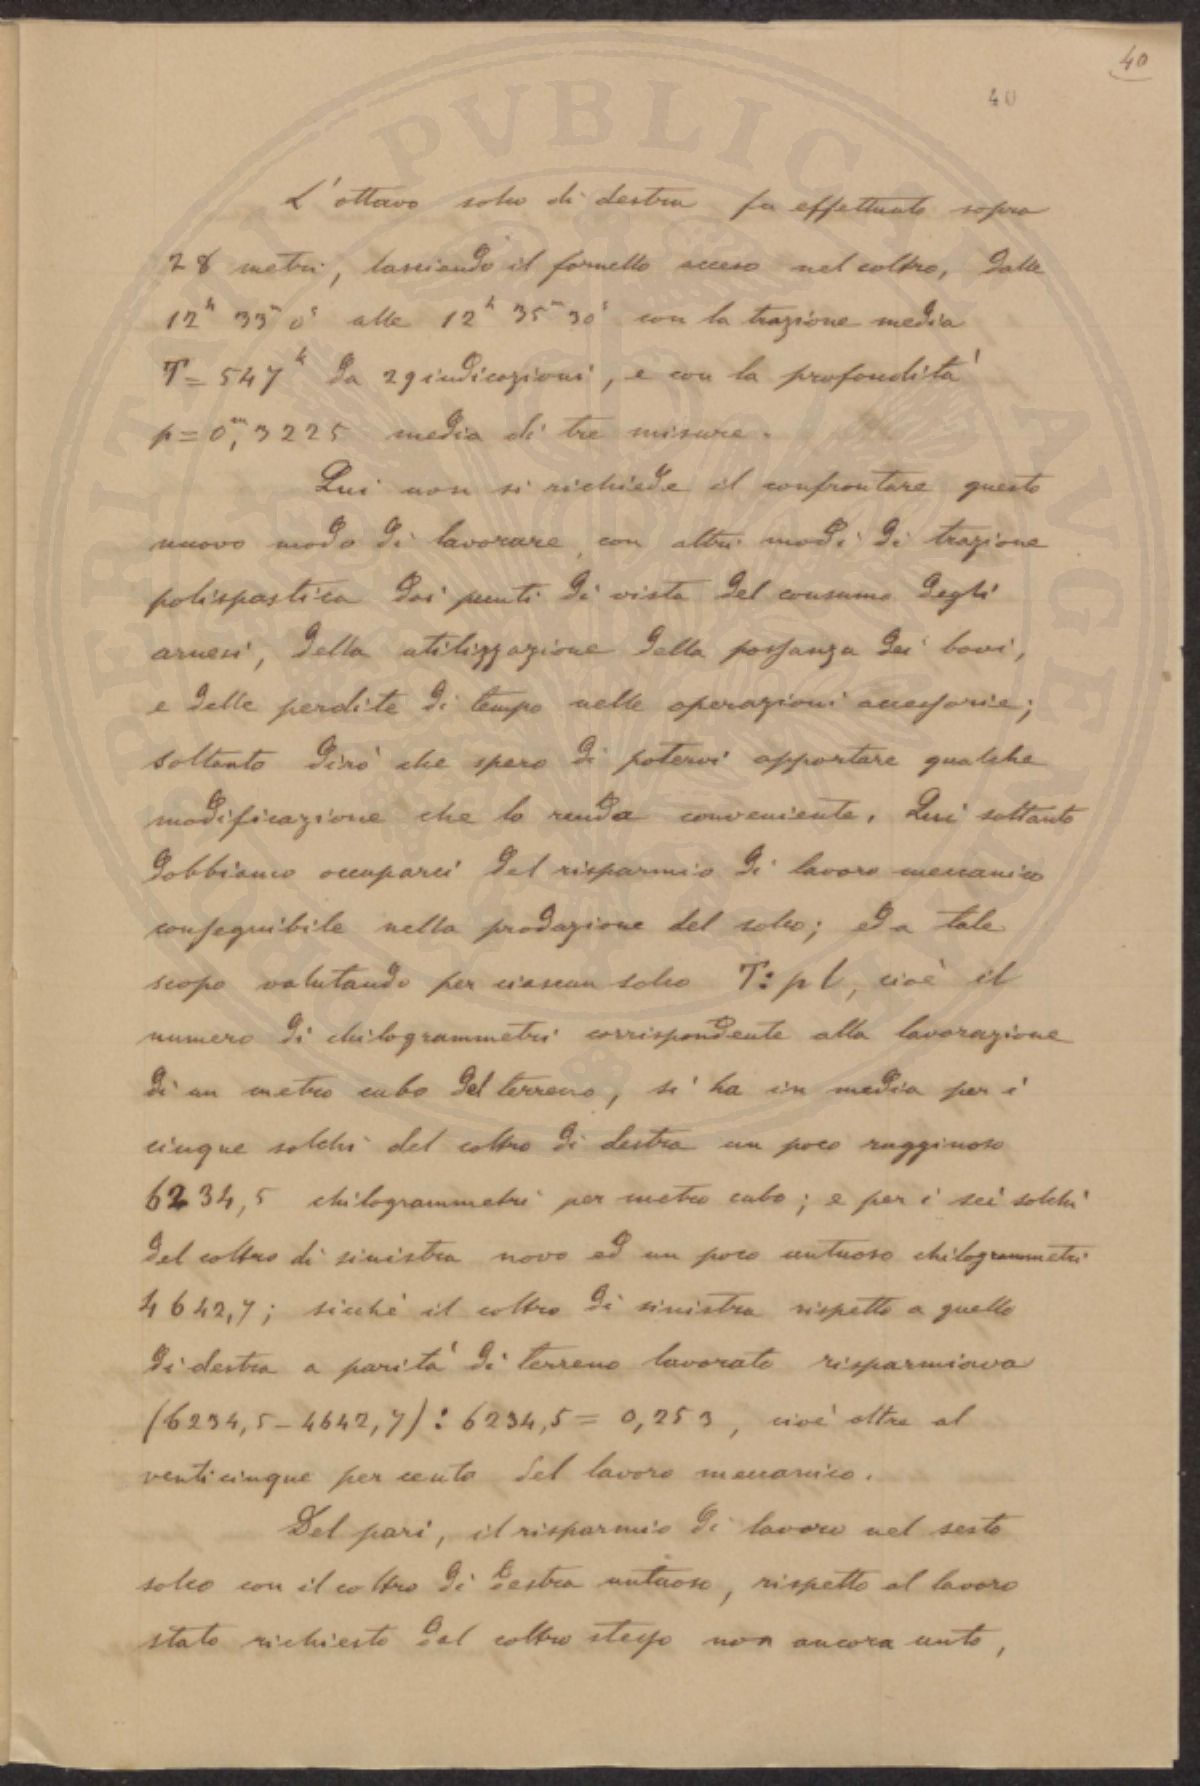 40
40
L'ottavo solco di destra fu effettuato sopra
28 metri, lasciando il fornello acceso nel coltro, dalle
12h 33m 0s alle 12h 35m 30s con la trazione media
T = 547k da 29 indicazioni, e con la profondità
p = 0m,3225 media di tre misure.
Qui non si richiede il confrontare questo
nuovo modo di lavorare con altri modi di trazione
polispastica dai punti di vista del consumo degli
arnesi, della utilizzazione della possanza dei bovi,
e delle perdite di tempo nelle operazioni accessorie;
soltanto dirò che spero di potervi apportare qualche
modificazione che lo renda conveniente. Qui soltanto
dobbiamo occuparci del risparmio di lavoro meccanico
conseguibile nella produzione del solco; ed a tale
scopo valutando per ciascun solco T : pl, cioè il
numero di chilogrammetri corrispondente alla lavorazione
di un metro cubo del terreno, si ha in media per i
cinque solchi del coltro di destra un poco rugginoso
6234,5 chilogrammetri per metro cubo; e per i sei solchi
del coltro di sinistra novo ed un poco untuoso chilogrammetri
4642,7; sicché il coltro di sinistra rispetto a quello
di destra a parità di terreno lavorato risparmiava
(6234,5 – 4642,7) : 6234,5 = 0,253, cioè oltre al
venticinque per cento del lavoro meccanico.
Del pari, il risparmio di lavoro nel sesto
solco con il coltro di destra untuoso, rispetto al lavoro
stato richiesto dal coltro stesso non ancora unto,
PVBLICAE AVGEN PERITATI